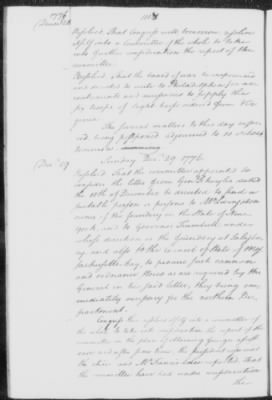 1776
Resolved, That Congress will tomorrow resolve
itself into a committee of the whole to take
into further consideration the report of the
committee.
Resolved, That the board of war be empowered
and directed to make to Philadelphia
and to supply the
troops of light horse ordered from Vir
ginia
The several matters to this day refer
red being postponed adjourned to 10 o'clock
tomorrow
Dec. 29
Sunday Dec. 29. 1776.
Resolved That the committee appointed to
consider the letter from Gen. Schuyler dated
the 10th of December be directed to send a
suitable person or persons to Mr. Livingston
owner of the foundery in the State of New
york, and to Governor Trumbull under
whose direction is the foundery at Salisbu
ry and also to the council of State of Mas
sachusetts bay, to procure such cannon
and ordnance stores as are required by the
General in his said letter, they being im
mediately necessary for the northern De
partment.
Congress then resolved itself into a committee of
the whole to take into consideration the report of the
committee on the
and after some time the president resumed
the chair and
the committee have had under consideration
the